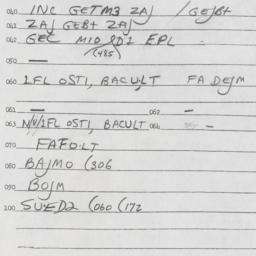 040 INC GETM3 ZAJ /GEJB+
041 ZAJ GEB+ ZAJ
042 GEC M10 SD2 EPL -
(485
050 —
060 1FL OSTI, BACULT FA DEJM
061 — 062 -
063 N/V/1FL OSTI, BACULT 064 -
070 FAFO.LT
080 BAJMO (306
090 BOJM
100 SU.ED2 (060 (172